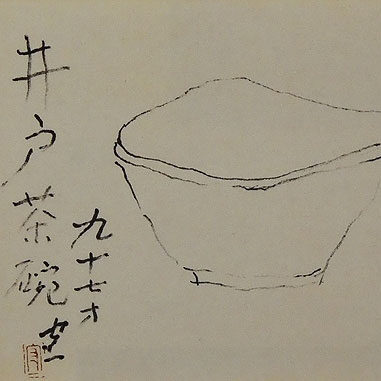 井戸茶碗
九十七才